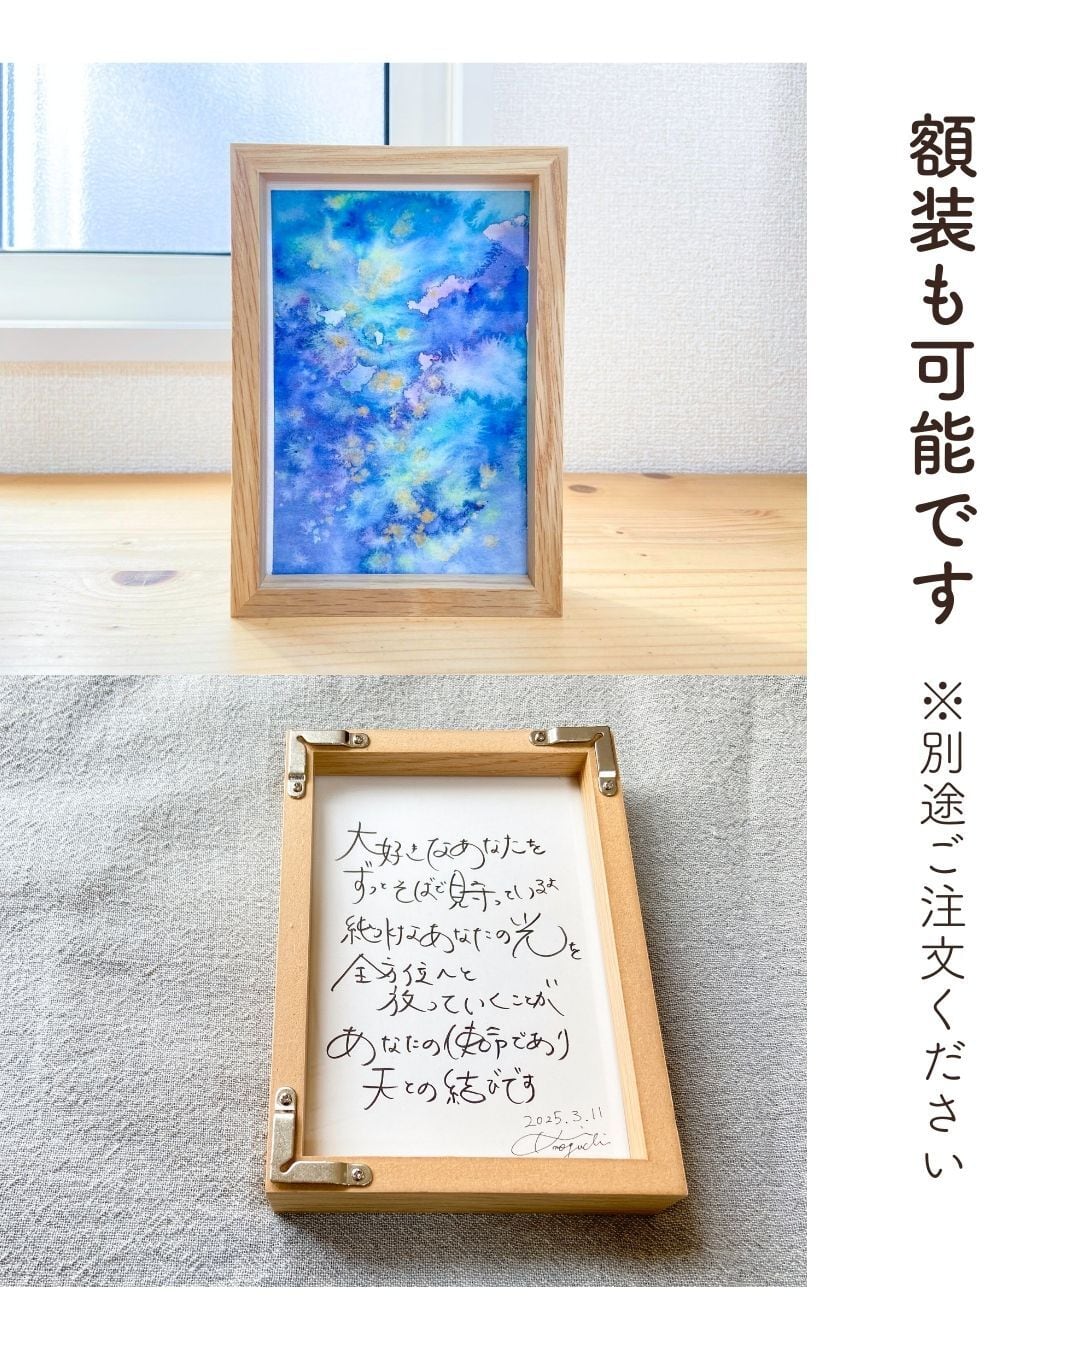 額装も可能です ※別途ご注文ください
大好きなあなたを
ずっとそばで見守っているよ
純粋なあなたの光を
全方位へと
放っていくことが
あなたの使命であり
天との結びです
2025.3.11